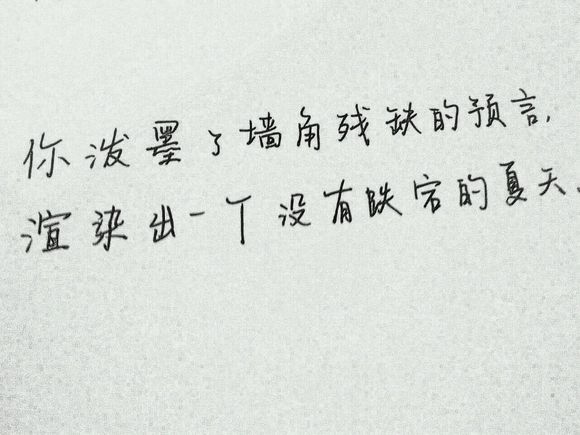 你泼墨了墙角残缺的预言,
渲染出一个没有跌宕的夏天.